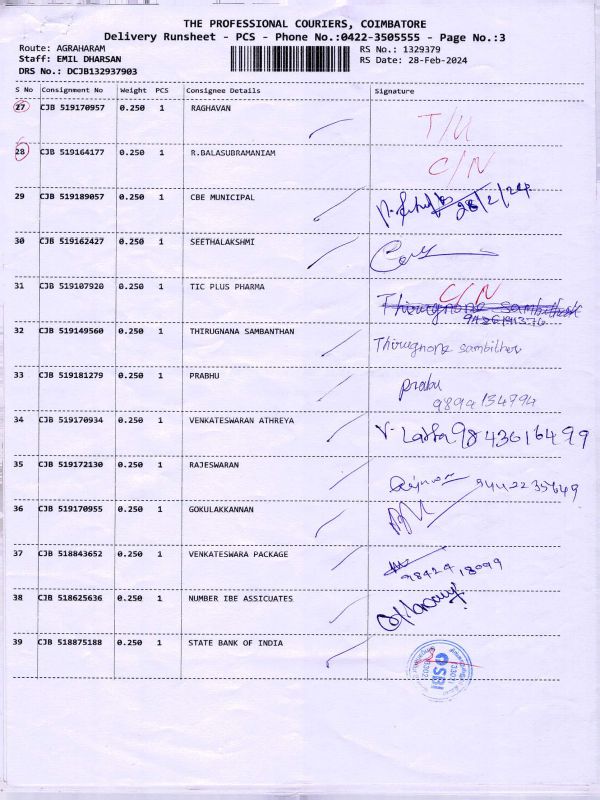 THE PROFESSIONAL COURIERS, COIMBATORE
Delivery Runsheet - PCS - Phone No.:0422-3505555 - Page No.:3
Route: AGRAHARAM RS No.: 1329379
Staff: EMIL DHARSAN RS Date: 28-Feb-2024
DRS No.: DCJB132937903
S No Consignment No Weight PCS Consignee Details Signature
27 CJB 519170957 0.250 1 RAGHAVAN T/U
28 CJB 519164177 0.250 1 R.BALASUBRAMANIAM C/N
29 CJB 519189057 0.250 1 CBE MUNICIPAL 28/2/24
30 CJB 519162427 0.250 1 SEETHALAKSHMI
31 CJB 519107920 0.250 1 TIC PLUS PHARMA C/N
32 CJB 519149560 0.250 1 THIRUGNANA SAMBANTHAN Thirugnone sambither
33 CJB 519181279 0.250 1 PRABHU prabu
9894134794
34 CJB 519170934 0.250 1 VENKATESWARAN ATHREYA V. Latha 9843616499
35 CJB 519172130 0.250 1 RAJESWARAN 9442235649
36 CJB 519170955 0.250 1 GOKULAKKANNAN
37 CJB 518843652 0.250 1 VENKATESWARA PACKAGE
98429 18099
38 CJB 518625636 0.250 1 NUMBER IBE ASSICUATES
39 CJB 518875188 0.250 1 STATE BANK OF INDIA SBI